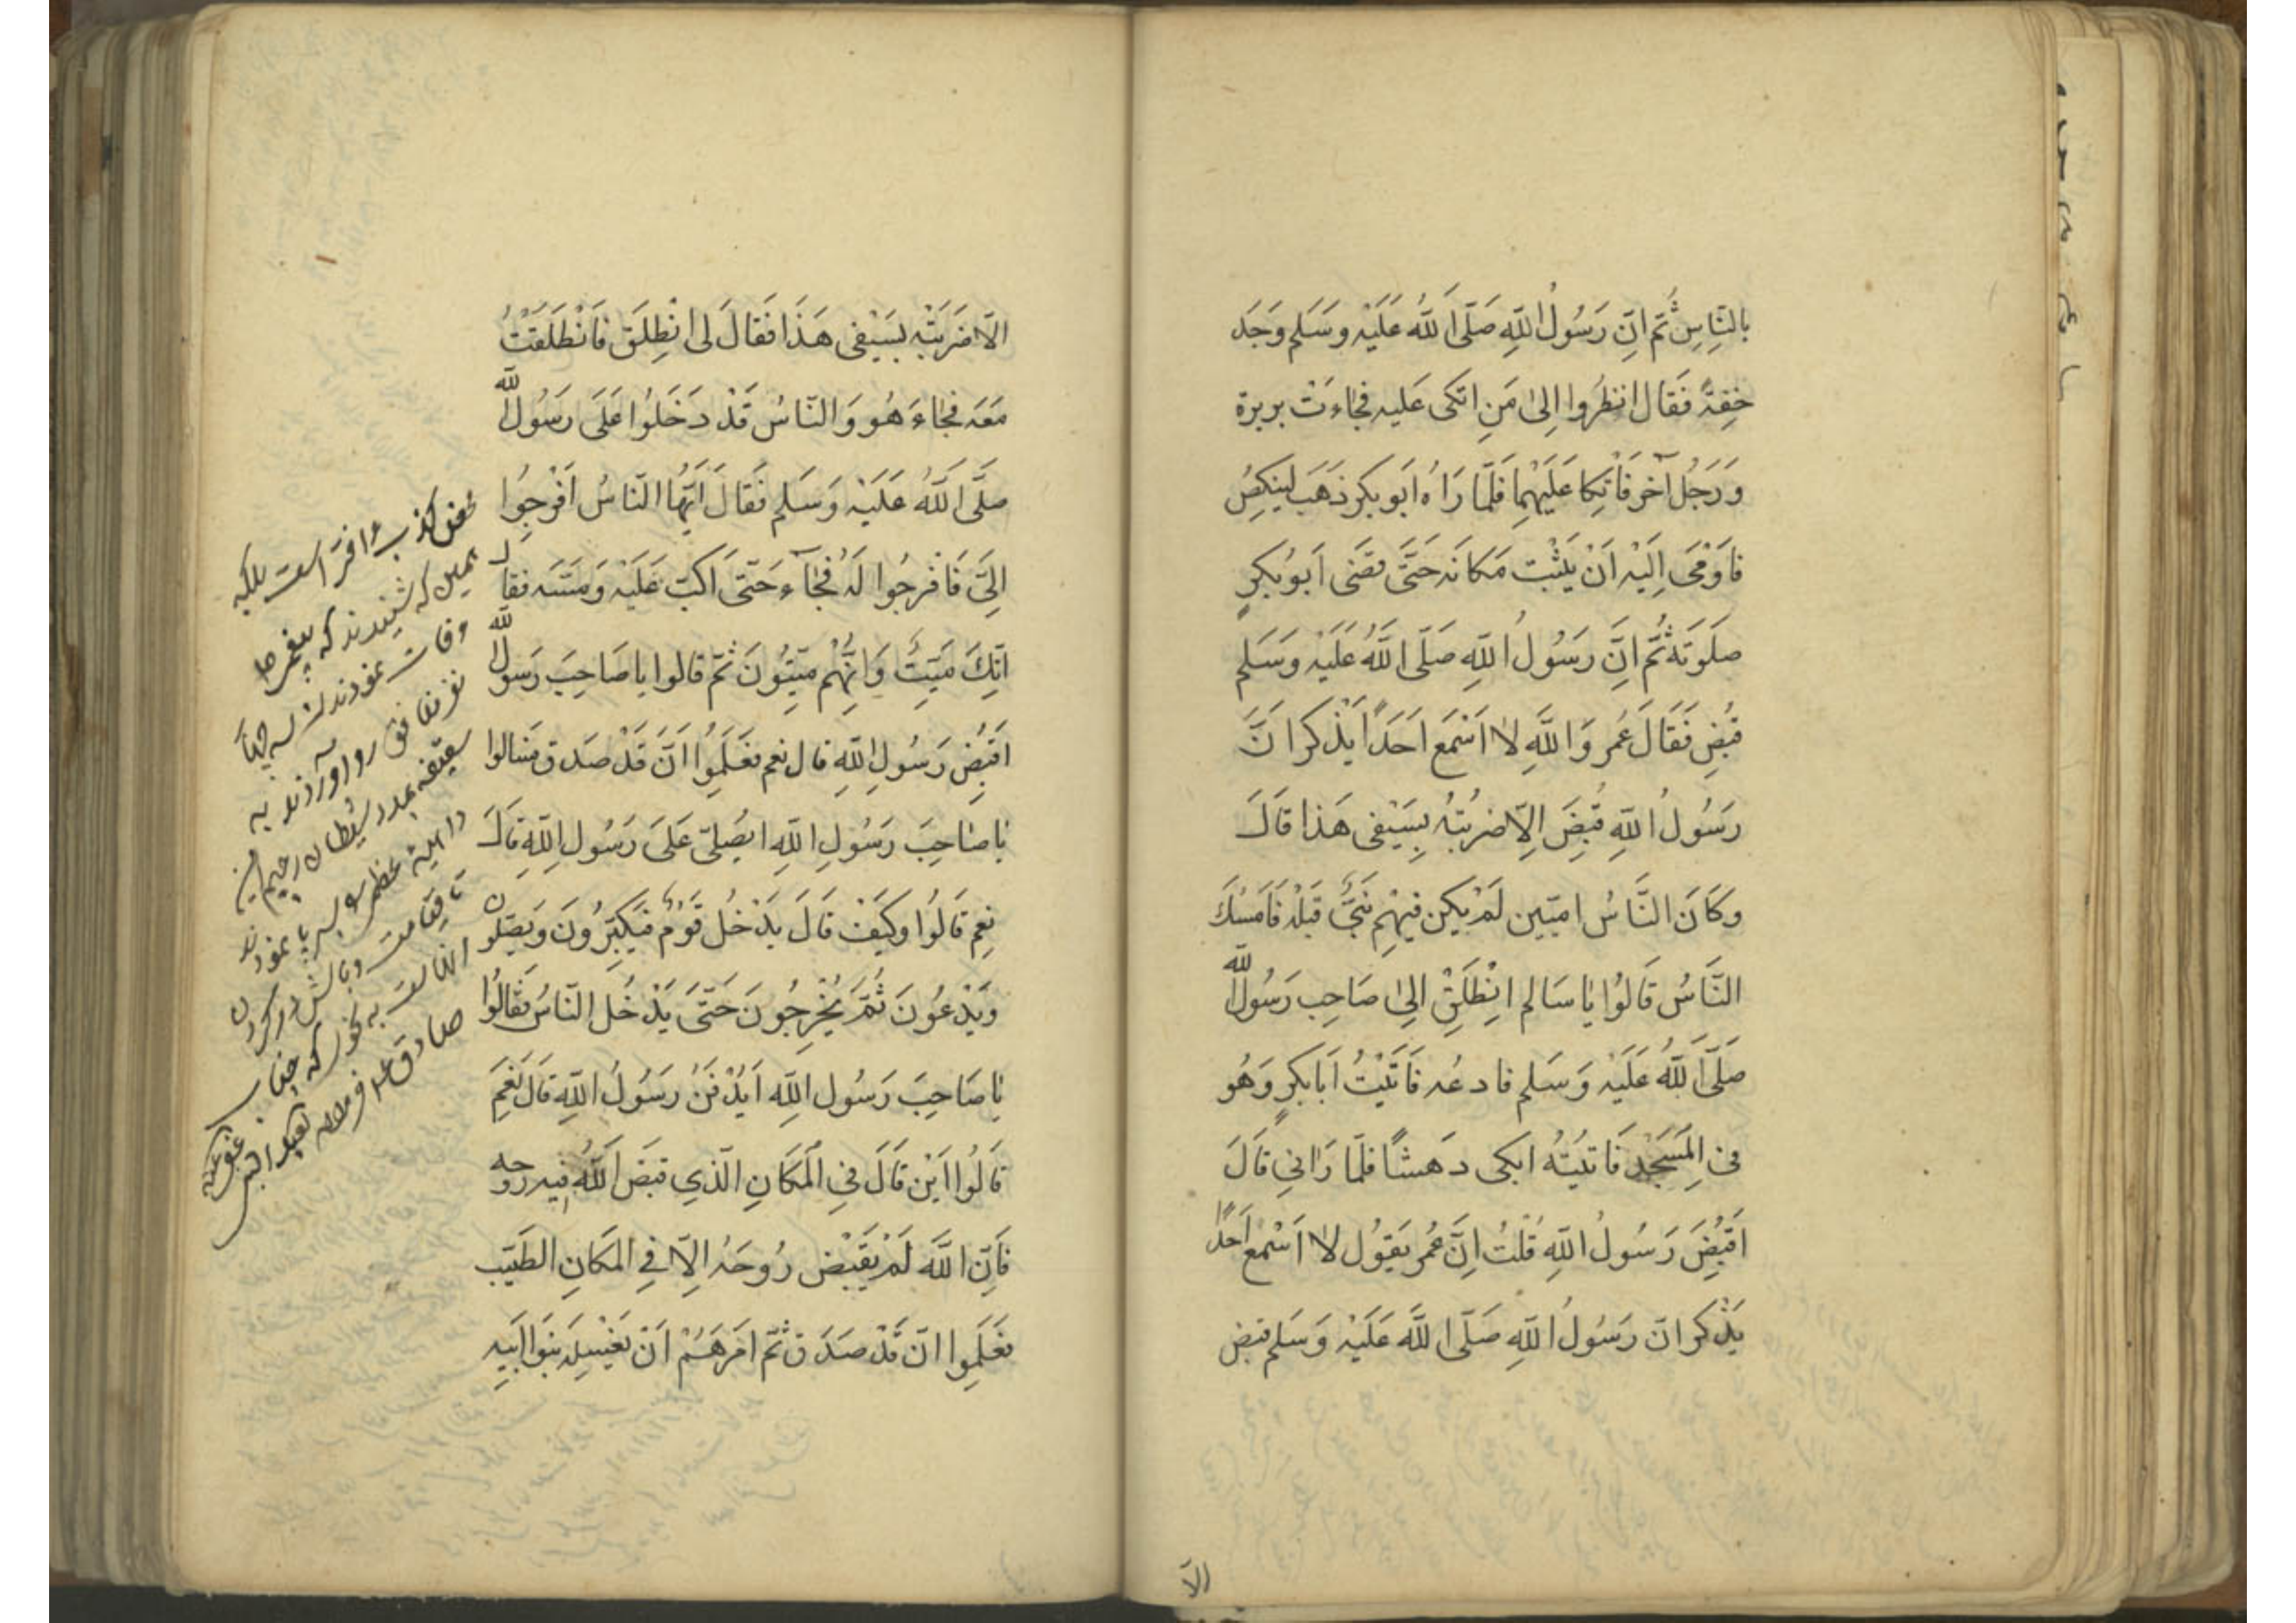 بالنَّاسِ ثُمَّ اِنَّ رَسُولُ اللهِ صَلَّى اللَّه عَلَيْه وسَلم وَجَد
خِفةً فَقال انظرُوا اِلىٰ مَنِ اتكى عَليه فجاءتْ بريرة
وَرَجُل آخر فَاتكا عَلَيْهِما فَلَمّا رَاهُ ابَو بكر ذهَب لينكصُ
فاَوْمٰى اِلَيْه اَنْ يَثْبت مَكانَه حَتَّى قضى اَبو بُكرٍ
صلَوتَهُ ثُمَّ انَّ رَسُولُ اللهِ صَلّى اللَّهُ عَلَيْه وَسَلم
قُبُضِ فَقَالَ عُمر وَاللَّهِ لا اَسْمَع اَحَداً يَذكر انَّ
رَسُولُ اللهِ قُبِضَ اِلّا ضربتُهُ بِسَيْفى هَذا قالَ
وكانَ النَّاسُ اميّين لَمْ يكن فيْهِم نَبىٌّ قَبْلَهُ فَاَمْسَكَ
النَّاسُ قَالوُا يٰا سَالم انْطَلِقْ اِلىٰ صَاحِب رَسُول الله
صَلَّى اللَّهُ عَلَيْه وَسَلم فادعُه فَاتَيْتُ اَبَا بكرٍ وَهُو
فى المَسْجِد فَاتيتُهُ ابكى دَهشًا فلَمّا رَانىِ قالَ
اَقُبُضَِ رَسُولُ اللهِ قُلتُ اِنَّ عُمر يَقوُل لا اَسْمع اَحداً
يَذْكر انّ رَسُولُ اللهِ صَلّى اللَّه عَلَيْه وَسَلم قبض
الّا
الّا ضَربَتْه بسَيْفى هَذَا فَقالَ لى انْطِلَق فَانْطَلَقَتُ
مَعَه فجاءَ هُو وَالنّاسُ قَدْ دَخَلُوا عَلَى رَسُول الله
صلَّى اللَّهُ عَلَيْه وَسَلم فَقالَ اَيّهُا النّاسُ اَفْرجِوُا
الِىَّ فَافرجُوا لَهُ فجاۤء حَتّى اَكبّ عَلَيْه وَمَسَّه فقال
انّكَ مَيّتٌ وَانِّهُم مَيّتُونَ ثمّ قالوا يا صَاحِبَ رَسول الله
اقَبُضِ رَسُولِ اللهِ قال نعم فعَلَمِوُا انَّ قَدْ صَدق فسَالوا
يٰا صٰاحِبَ رَسُولِ اللهِ ايصُلىّ عَلَى رَسُولِ اللهِ قالَ
نِعم قالُوا وكَيَفْ قالَ يَدْخُل قَوْمٌ فَيكَبِّرُونَ وَيصَلون
وَيَدْعُونَ ثُمّ يَخْرِجُونَ حَتّى يَدْخُل النّاسُ فَقالُوا
يٰا صَاحِبَ رَسُول اللهِ اَيُدْفَنُ رَسُولُ اللهِ قالَ نَعِمَ
قَالُوا اَيْن قالَ فىِ المَكَانِ الّذِي قبَضَ اللَّهُ فيِه روُحه
فَاِنّ اللَّه لَمْ يقَبْض رُوحَهُ الِّا فِى المَكانِ الطَيّب
فعَلَمِوا انّ قَدْ صَدَق ثُمّ امَرهَمُ اَنْ يَغْسِلَه بَنوَا اَبيه
محض كذب و افترا است بلكه
همين كه شنيدند كه پيغمبر ص
وفات نمودند
نفر منافق رو آوردند به
سقيفه بمدد شيطان رجيم
تا قيامت
صادق ع فرموده